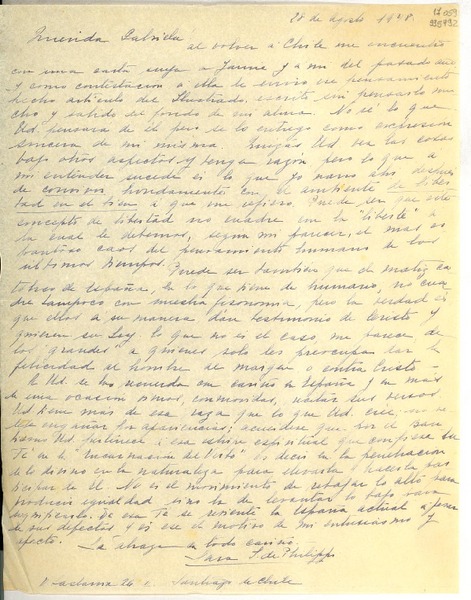 28 de agosto 1948.
Querida Gabriela
al volver a Chile me encuentro
con una carta suya a Jaime y a mi del pasado
y como contestación a ella le envío ese pensamiento
hecho artículo del Ilustrado. escrito sin pensarlo mu-
cho y salido del fondo de mi alma. No sé lo que
Ud. pensara de él pero se lo entrego como expresión
sincera de mi misma. Ud vea las cosas
bajo otros aspectos y tengan razón pero lo que a
mi entender sucede es lo que yo narro ahi después
de convivir, hondamente con el ambiente de liber-
tad en el bien a que me refiero. Puede ser que este
concepto de libertad no cuadre con la "liberté" a
la cual le debemos, según mi parecer, el mas es-
pantoso caos del pensamiento humano en los
últimos tiempos. Puede ser tambien que el matiz ca-
tólico de españa, en lo que tiene de humano, no cua-
dre tampoco con nuestra fisonomía, pero la verdad es
que ellos a su manera dan testimonio de Cristo y
quieren su Ley. lo que no es el caso, me parece de
los "grandes" a quienes solo les preocupa dar la
felicidad al hombre al margen o contra Cristo -
A Ud. se la recuerda con cariño en España y en más
de una ocasión oímos, conmovidos, recitar sus versos.
Ud tiene más de esa raza que lo que Ud. cree. no se
deje engañar por apariencias; acuérdese que por el bau-
tismo Ud. pertenece a esa estirpe espiritual que confiesa su
Fe en la "Encarnación del Verbo" Es decir en la penetración
de lo divino en la naturaleza para elevarla y hacerla par-
ticipar de El. No es el movimiento de rebajar lo alto para
producir igualdad sino la de levantar lo bajo para
significarlo. De esa Fe se resiente la España actual a pesar
de sus defectos y es ese el motivo de mi entusiasmo y
afecto. La abraza con todo cariño.
Sara I. de Philippi
26 Santiago de Chile